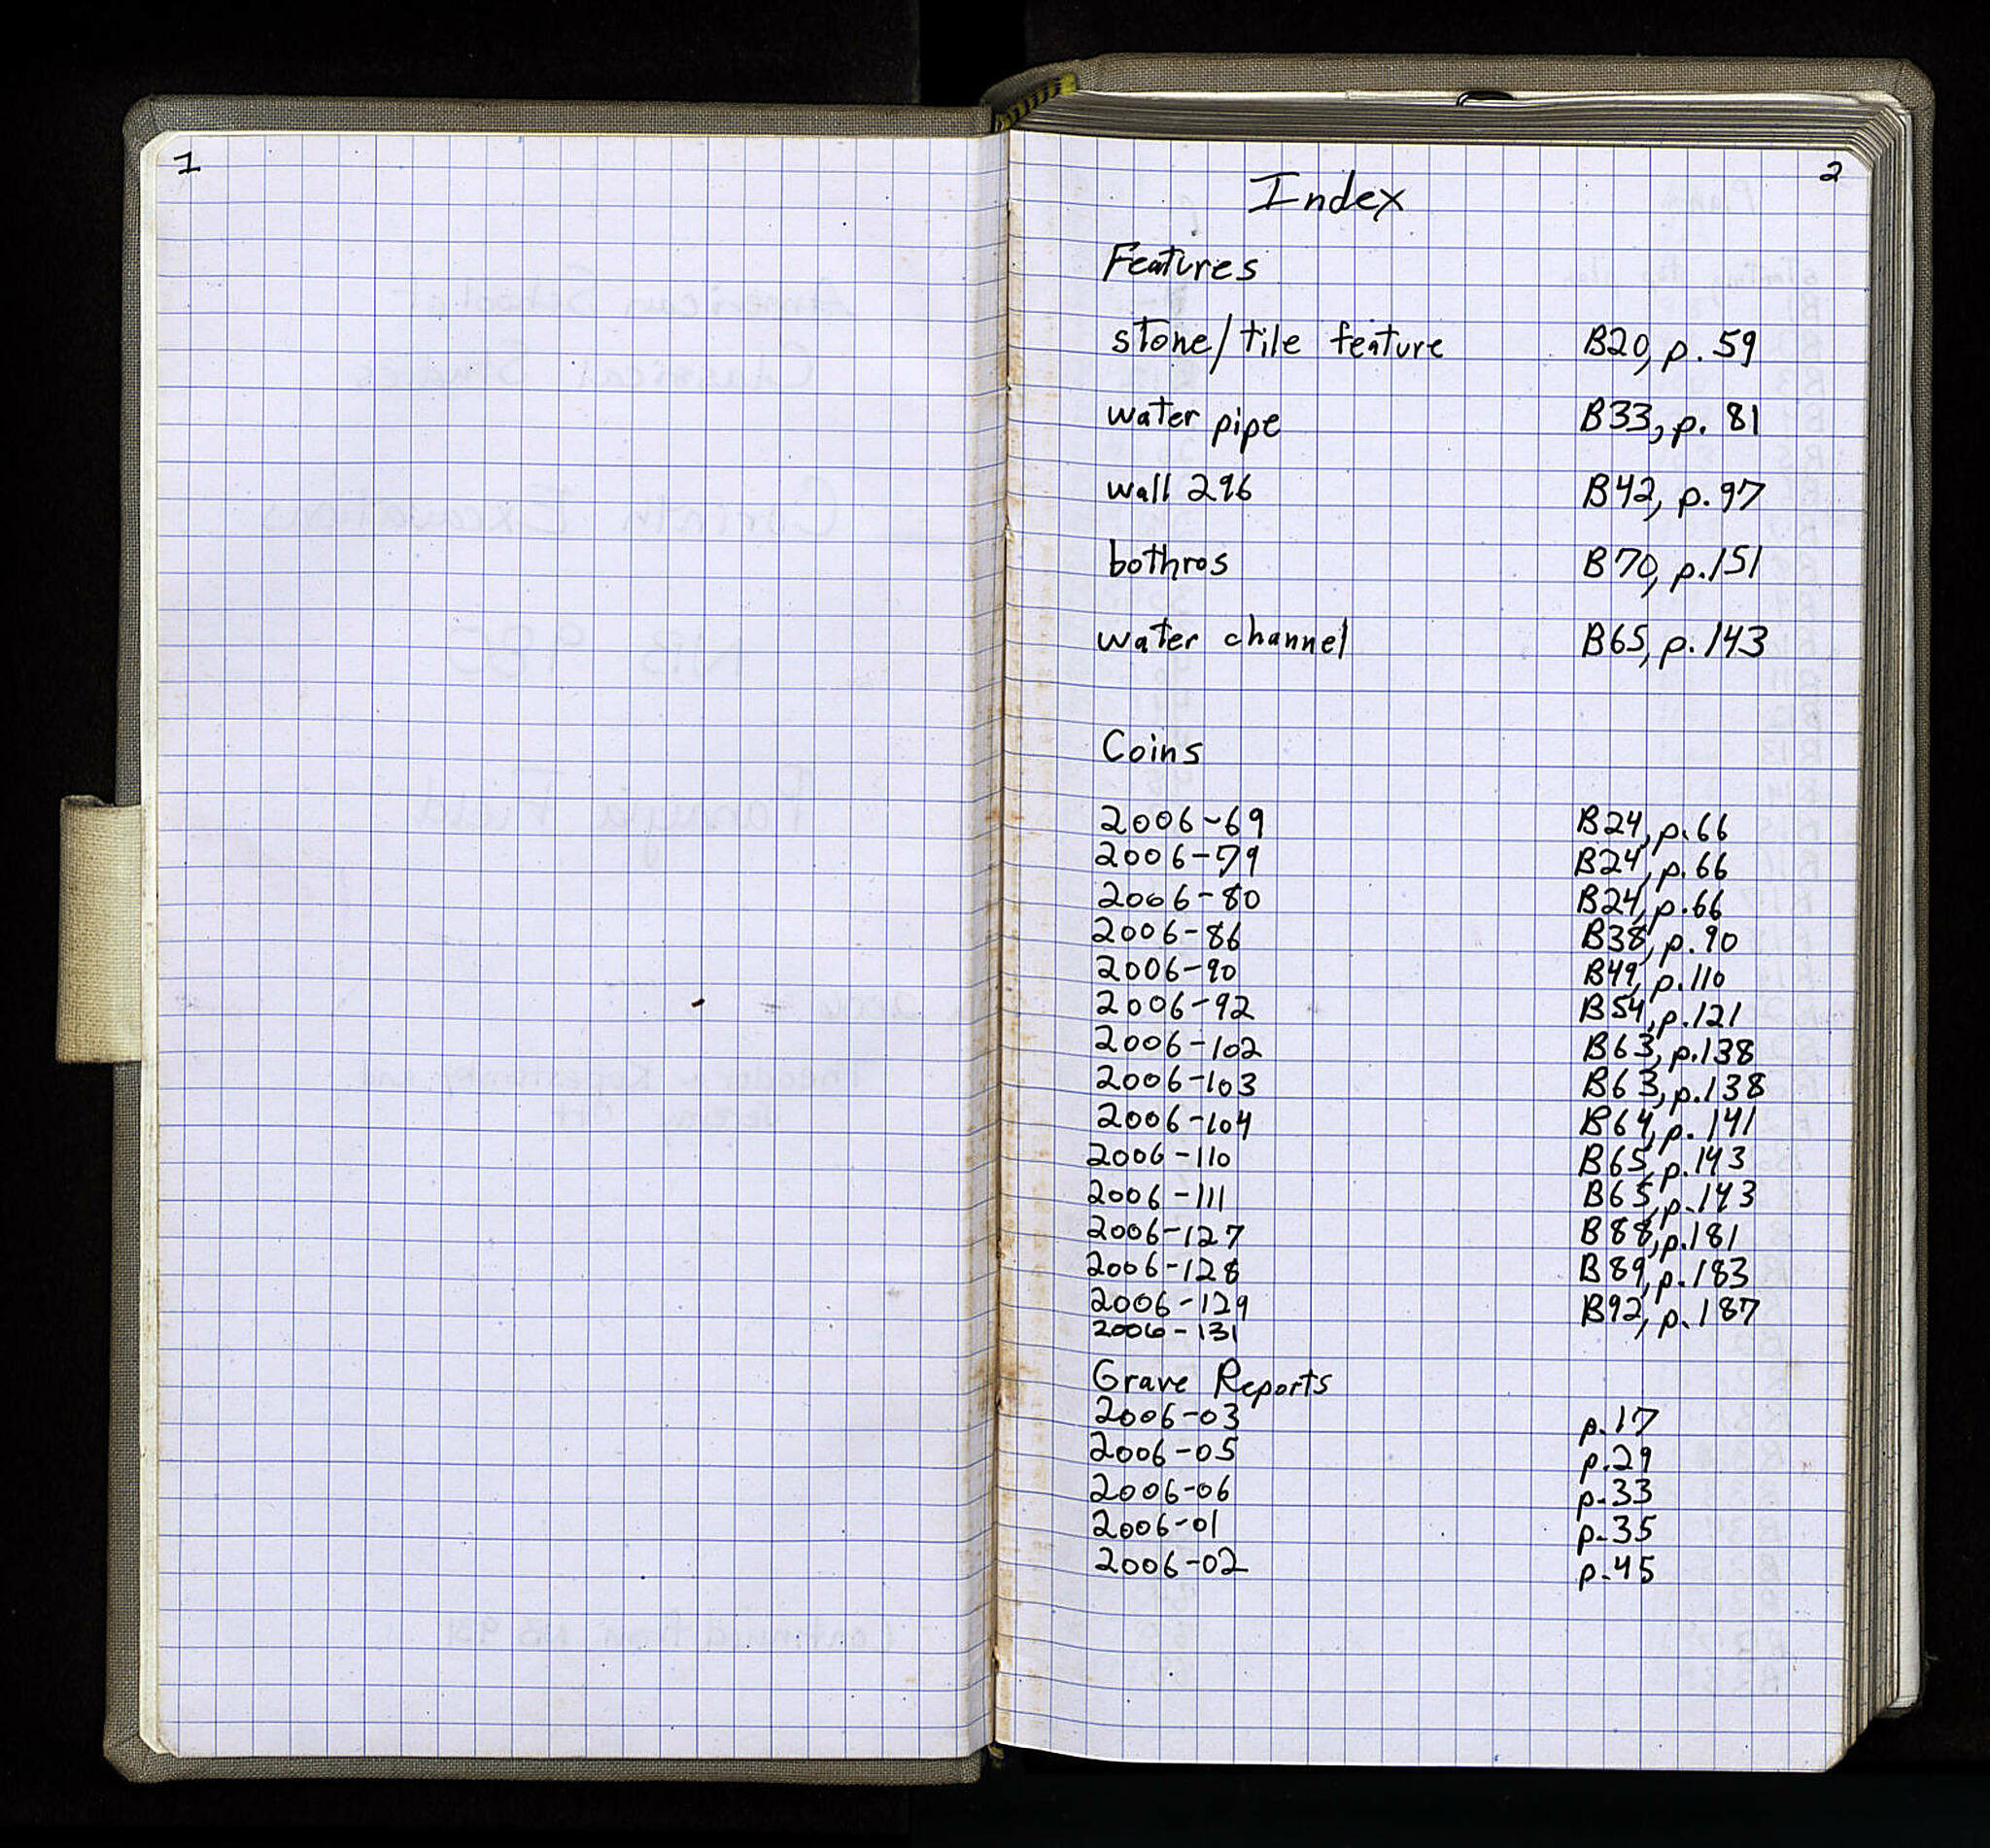 1
2
Index
Features
stone/tile feature B20, p. 59
water pipe B33, p. 81
wall 296 B42, p. 97
bothros B70, p. 151
water channel B65, p. 143
Coins
2006-69 B24, p. 66
2006-79 B24, p. 66
2006-80 B24, p. 66
2006-86 B38, p. 90
2006-90 B49, p. 110
2006-92 B54, p. 121
2006-102 B63, p. 138
2006-103 B63, p. 138
2006-104 B64, p. 141
2006-110 B65, p. 143
2006-111 B65, p. 143
2006-127 B88, p. 181
2006-128 B89, p. 183
2006-129 B92, p. 187
2006-131
Grave Reports
2006-03 p. 17
2006-05 p. 29
2006-06 p. 33
2006-01 p. 35
2006-02 p. 45